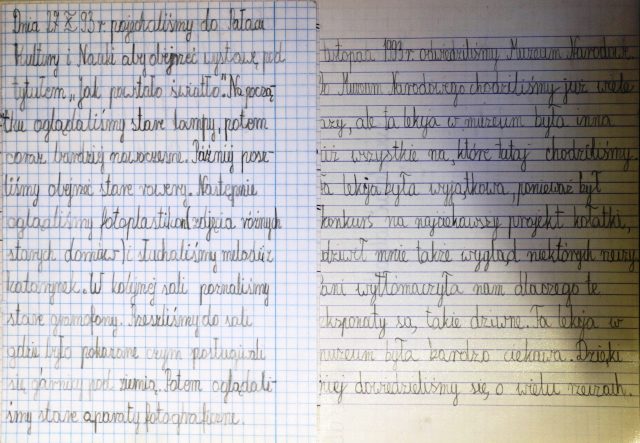 Dnia 27 X 93 r pojechaliśmy do Pałacu
Kultury i Nauki aby obejrzeć wystawę pod
tytułem „Jak powstało światło." Na począ
tku oglądaliśmy stare lampy, potem
coraz bardziej nowoczesne. Później posz-
liśmy obejrzeć stare rowery. Następnie
oglądaliśmy fotoplastikon (zdjęcia różnych
starych domków) i słuchaliśmy melodii z
katarynek. W kolejnej sali poznaliśmy
stare gramofony. Przeszliśmy do sali
gdzie było pokazane czym posługiwali
się górnicy pod ziemią. Potem oglądali-
śmy stare aparaty fotograficzne.
listopada 1993 r. odwiedziliśmy Muzeum Narodowe.
Do Muzeum Narodowego chodziliśmy już wiele
razy, ale ta lekcja w muzeum była inna
niż wszystkie na, które tutaj chodziliśmy.
Ta lekcja była wyjątkowa, ponieważ był
konkurs na najciekawszy projekt kołatki,
dziwił mnie także wygląd niektórych rzeczy.
Pani wytłumaczyła nam dlaczego te
eksponaty są takie dziwne. Ta lekcja w
muzeum była bardzo ciekawa. Dzięki
niej dowiedzieliśmy się o wielu rzeczach.